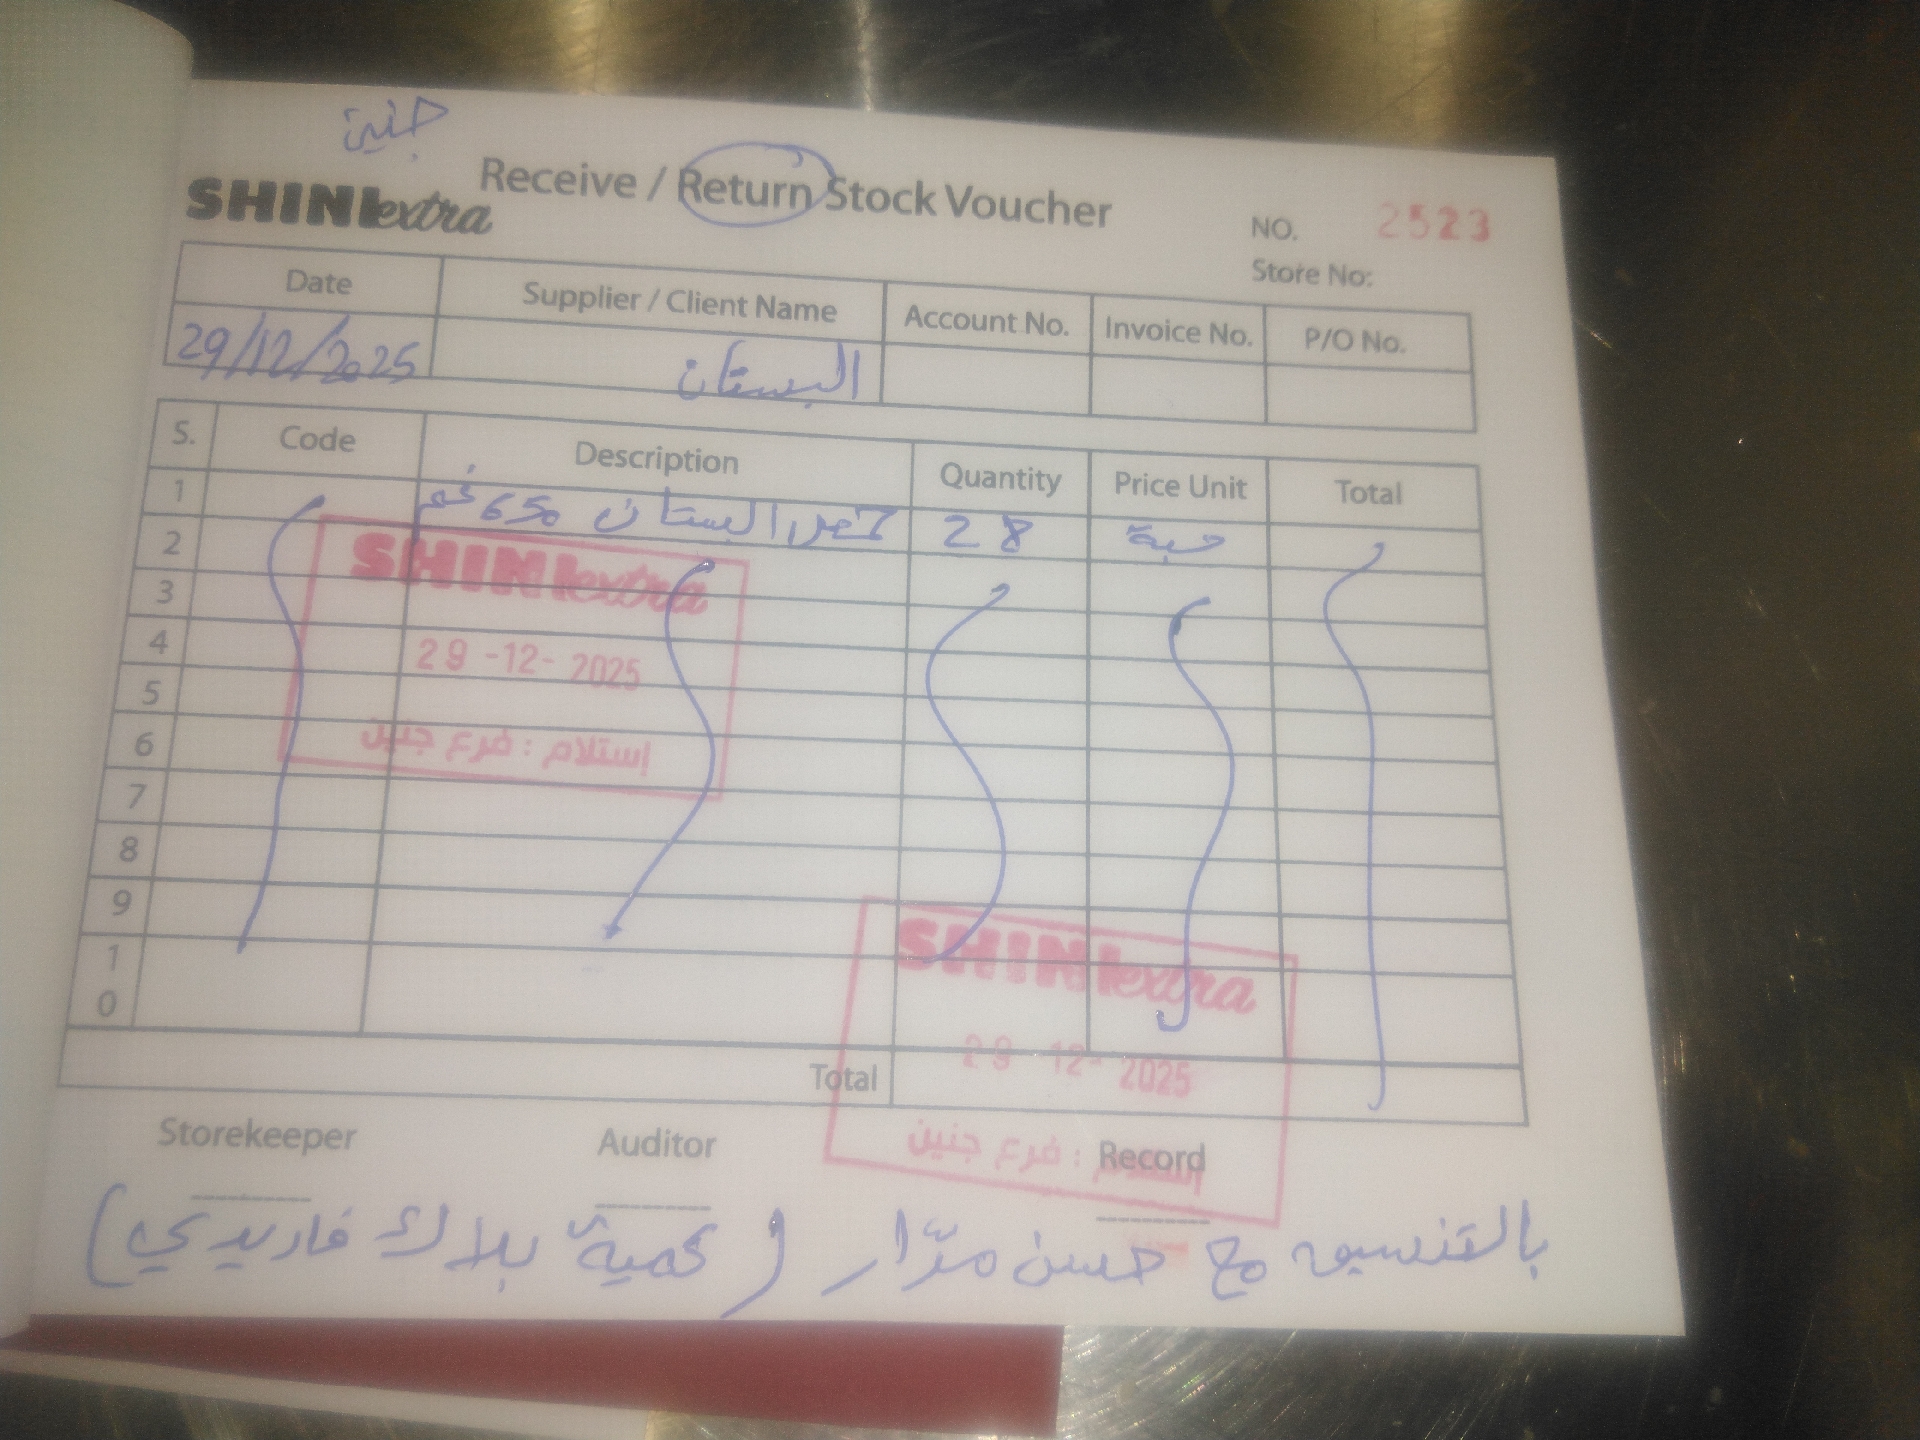 جنين
SHINI extra
Receive / Return Stock Voucher
NO. 2523
Store No:
Date Supplier / Client Name Account No. Invoice No. P/O No.
29/12/2025 البستان
S. Code Description Quantity Price Unit Total
1 حمص البستان 650 غم 28 حبة
2
3
4
5
6
7
8
9
10
SHINI extra
29 -12- 2025
إستلام : فرع جنين
Total
SHINI extra
29 12- 2025
إستلام : فرع جنين
Storekeeper Auditor Record
بالتنسيق مع حسن مرّار (كمية بلاك فاريدي)